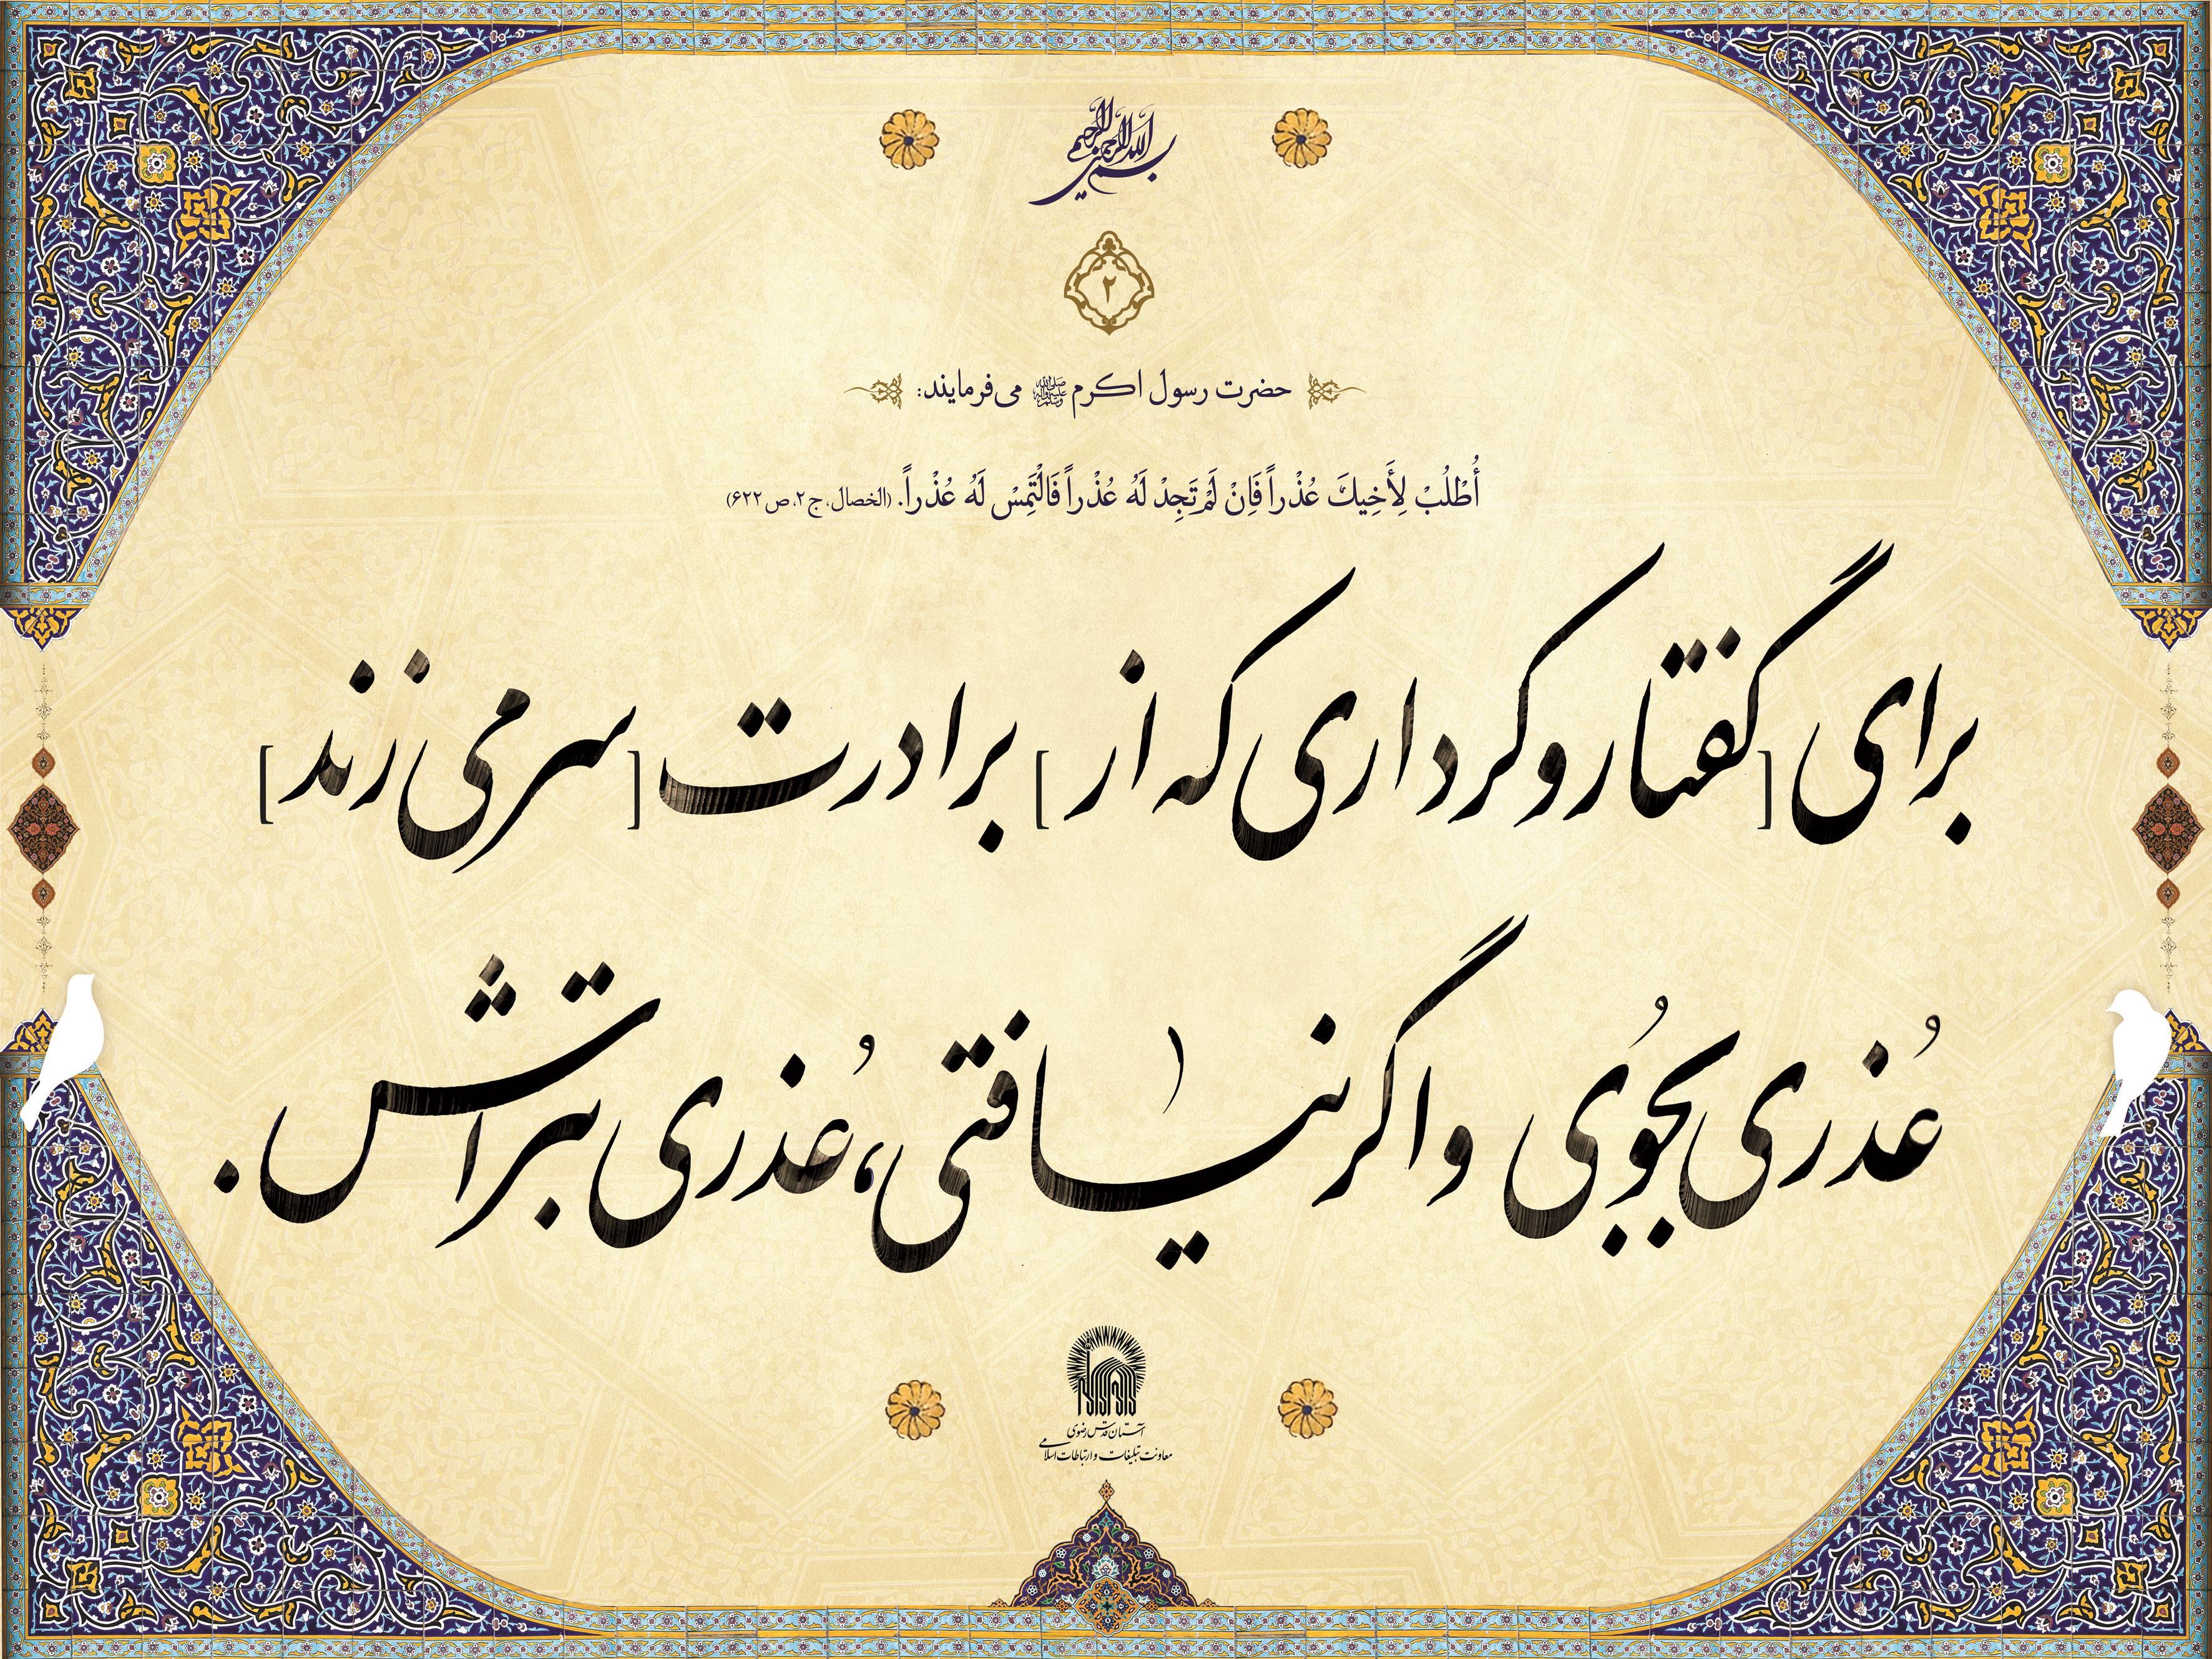 بسم الله الرحمن الرحیم
۲
حضرت رسول اکرم صلی الله علیه وآله وسلم می‌فرمایند:
أُطْلُبْ لِأَخِيكَ عُذْراً فَاِنْ لَمْ تَجِدْ لَهُ عُذْراً فَالْتَمِسْ لَهُ عُذْراً. (الخصال، ج۲، ص۶۲۲)
برای [گفتار و کرداری که از] برادرت [سر می‌زند]
عُذری بجُویی و اگر نیافتی، عُذری بتراش.
آستان قدس رضوی
معاونت تبلیغات و ارتباطات اسلامی